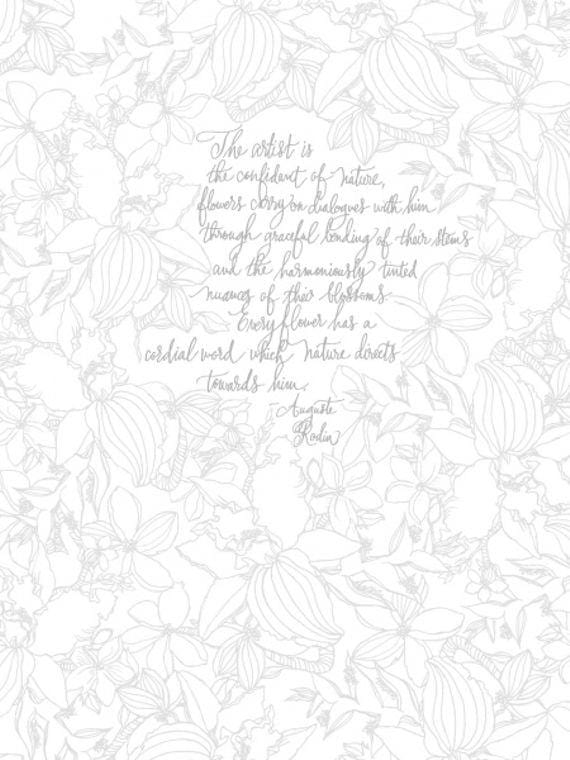 The artist is
the confidant of nature,
flowers carry on dialogues with him
through graceful bending of their stems
and the harmoniously tinted
nuances of their blossoms.
Every flower has a
cordial word which nature directs
towards him.
- Auguste
Rodin